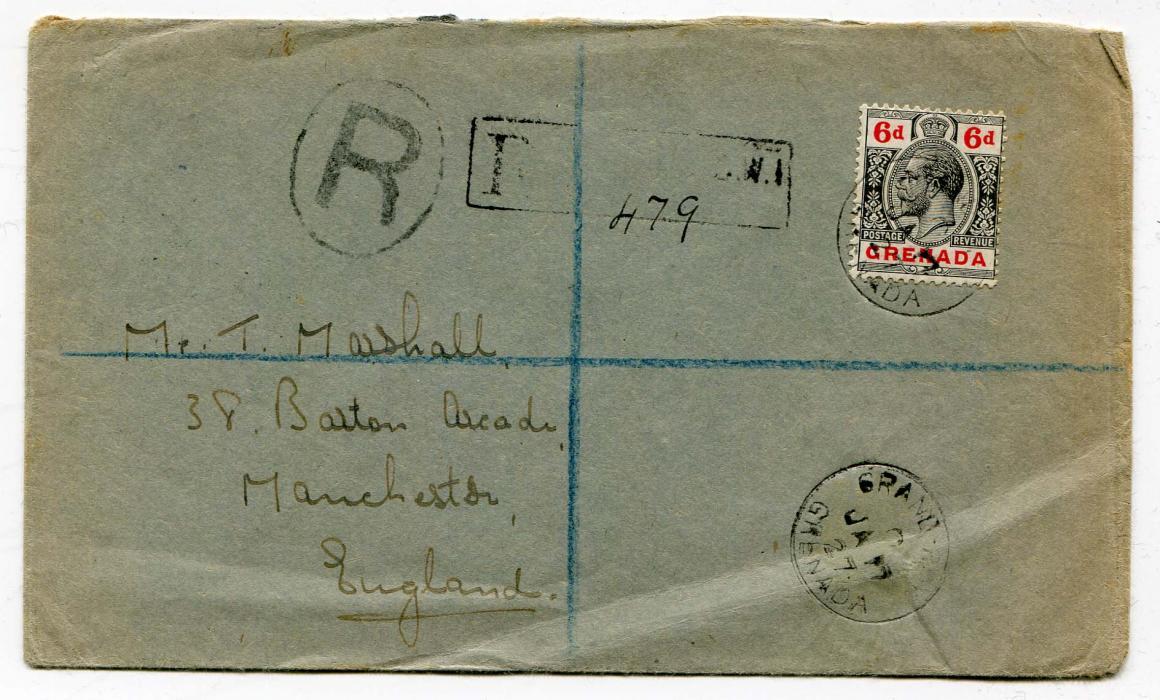 R
R
479
6d 6d
POSTAGE REVENUE
GRENADA
Mr. T. Marshall,
38. Barton Arcade,
Manchester,
England.
GRENADA
JA 17
27